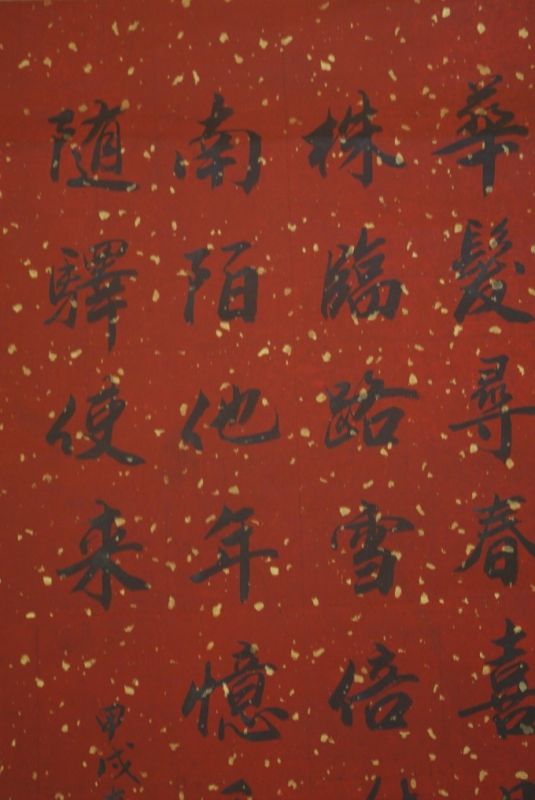 華髮尋春喜
株臨路雪倍
南陌他年憶
隨驛使來
甲戌